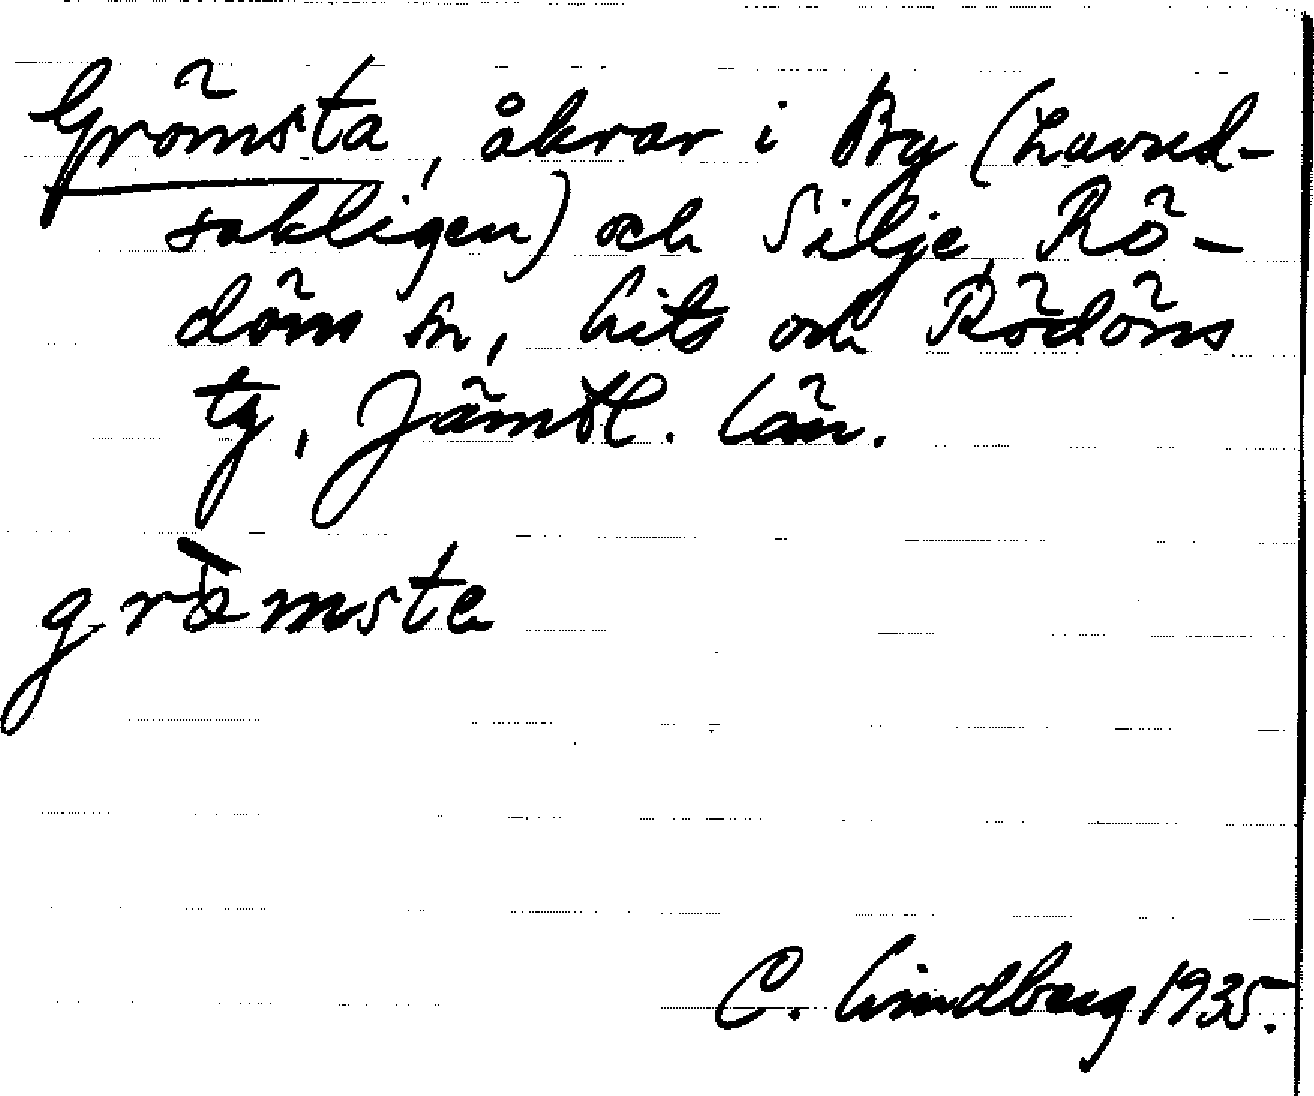 Grömsta, åkrar i By (huvud-
sakligen) och Silje, Rö-
döns sn, hits och Rödöns
tg, Jämtl. län.
grὰmsta
C. Lindberg 1935.